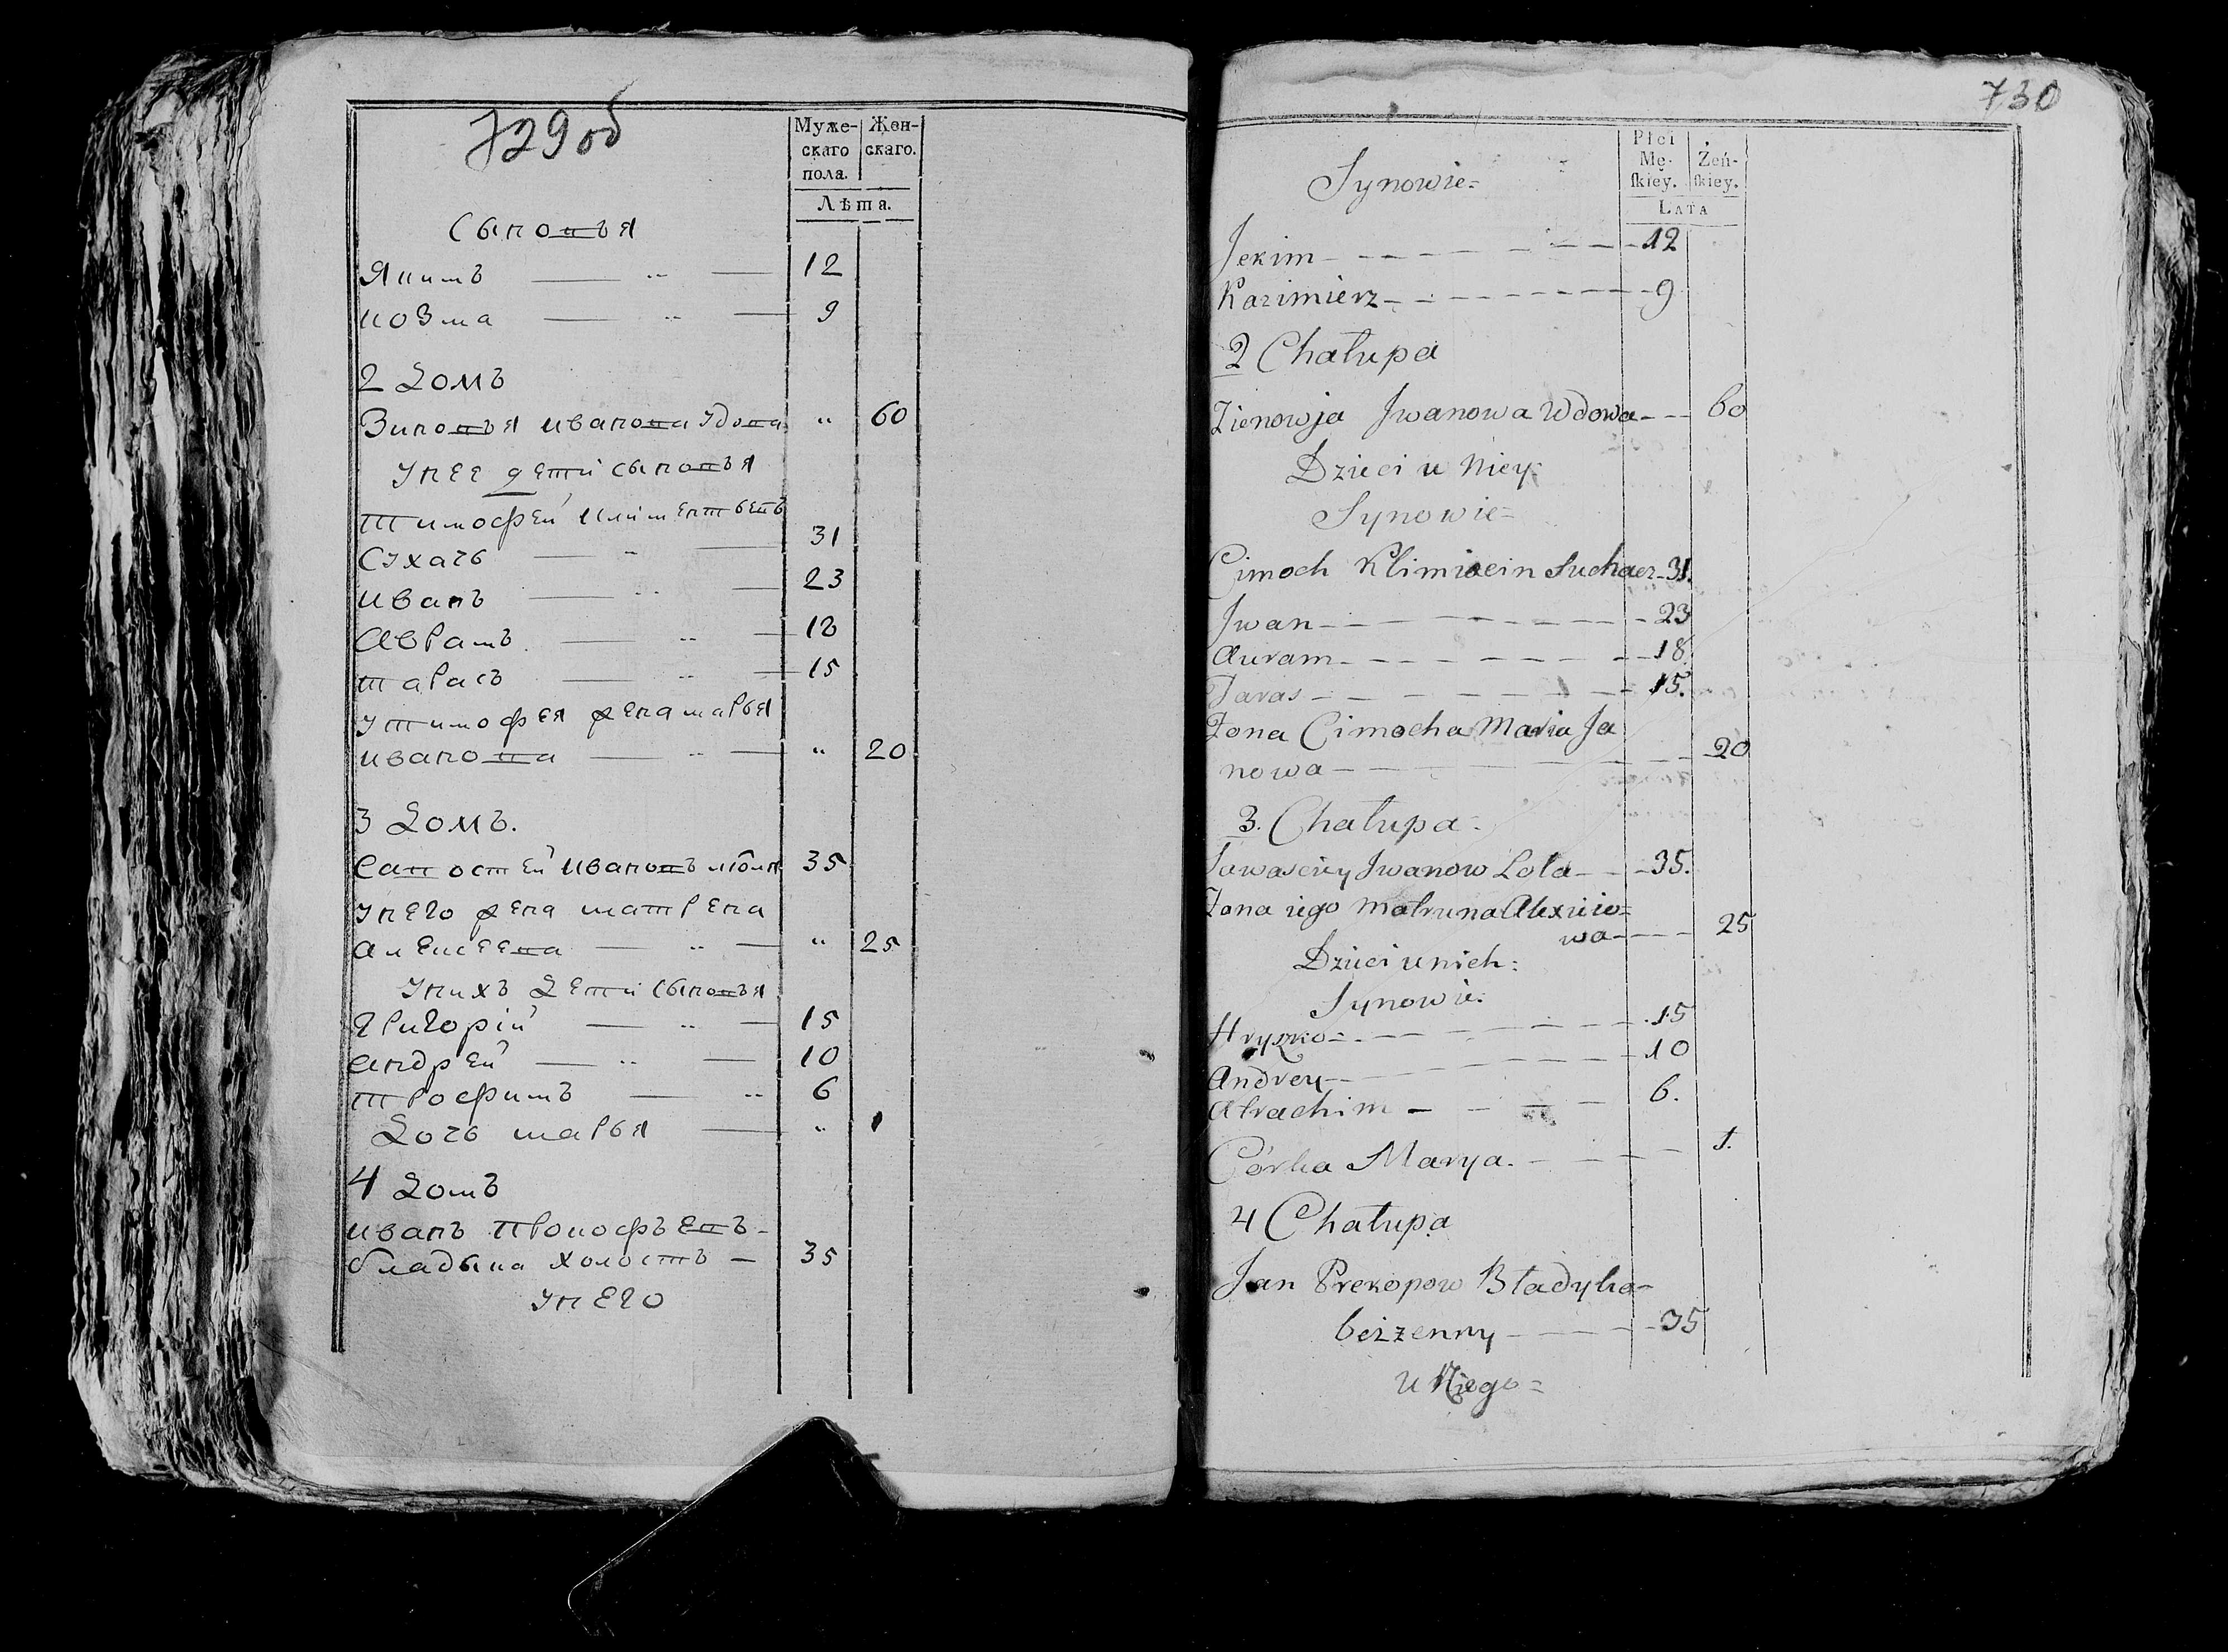 729 об
Муже-
скаго
пола.
Жен-
скаго.
Лѣта.
Сыновья
Якимъ — „ — 12
козма — „ — 9
2 Домъ
Зиновья иванова удова „ 60
унее дети сыновья
тимофей климентьевъ
сухачь — „ — 31
иванъ — „ — 23
аврамъ — „ — 18
тарасъ — „ — 15
утимофея жена марья
иванова — „ — „ 20
3 Домъ.
савостей ивановъ 35
унего жена матрена
алексеева — „ — „ 25
унихъ Дети сыновья
григорій — „ — 15
андрей — „ — 10
трофимъ — „ 6
Дочь марья — „ 1
4 Домъ
иванъ прокофьевъ-
бладыка холостъ — 35
унего
730
Płci
Mę-
ſkiey.
Żeń-
ſkiey.
Lata
Synowie=
Jekim - 12
Kazimierz - 9
2 Chałupa
Zienowja Jwanowa Wdowa - 60
Dzieci u Niey:
Synowie=
Cimoch Klimiaein Suchacz - 31.
Jwan - 23
Auram - 18.
Taras - 15.
Zona Cimocha Maria Ja
nowa - 20
3. Chałupa=
Sawasciey Jwanow Lola - 35.
Zona iego Matruna Alexiie=
wa - 25
Dzieci u nich:
Synowie:
Hryszko= - 15
Andrey - 10
Atrachim - 6.
Córka Marya. - 1.
4 Chałupa
Jan Prekopow Bładyka-
bezzenny - 35
u Niego=